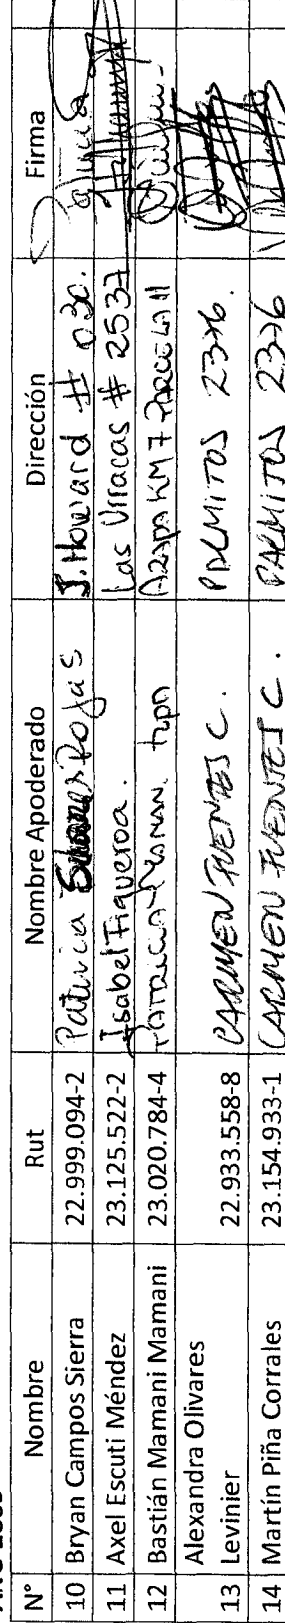 N° Nombre Rut Nombre Apoderado Dirección Firma
10 Bryan Campos Sierra 22.999.094-2 Patricia Rojas J. Howard # 030.
11 Axel Escuti Méndez 23.125.522-2 Isabel Figueroa. Las Urracas # 2537
12 Bastián Mamani Mamani 23.020.784-4 Azapa KM 7 Parcela 11
Alexandra Olivares
13 Levinier 22.933.558-8 CARMEN FUENTES C. PALMITOS 2376.
14 Martín Piña Corrales 23.154.933-1 CARMEN FUENTES C. PALMITOS 2376